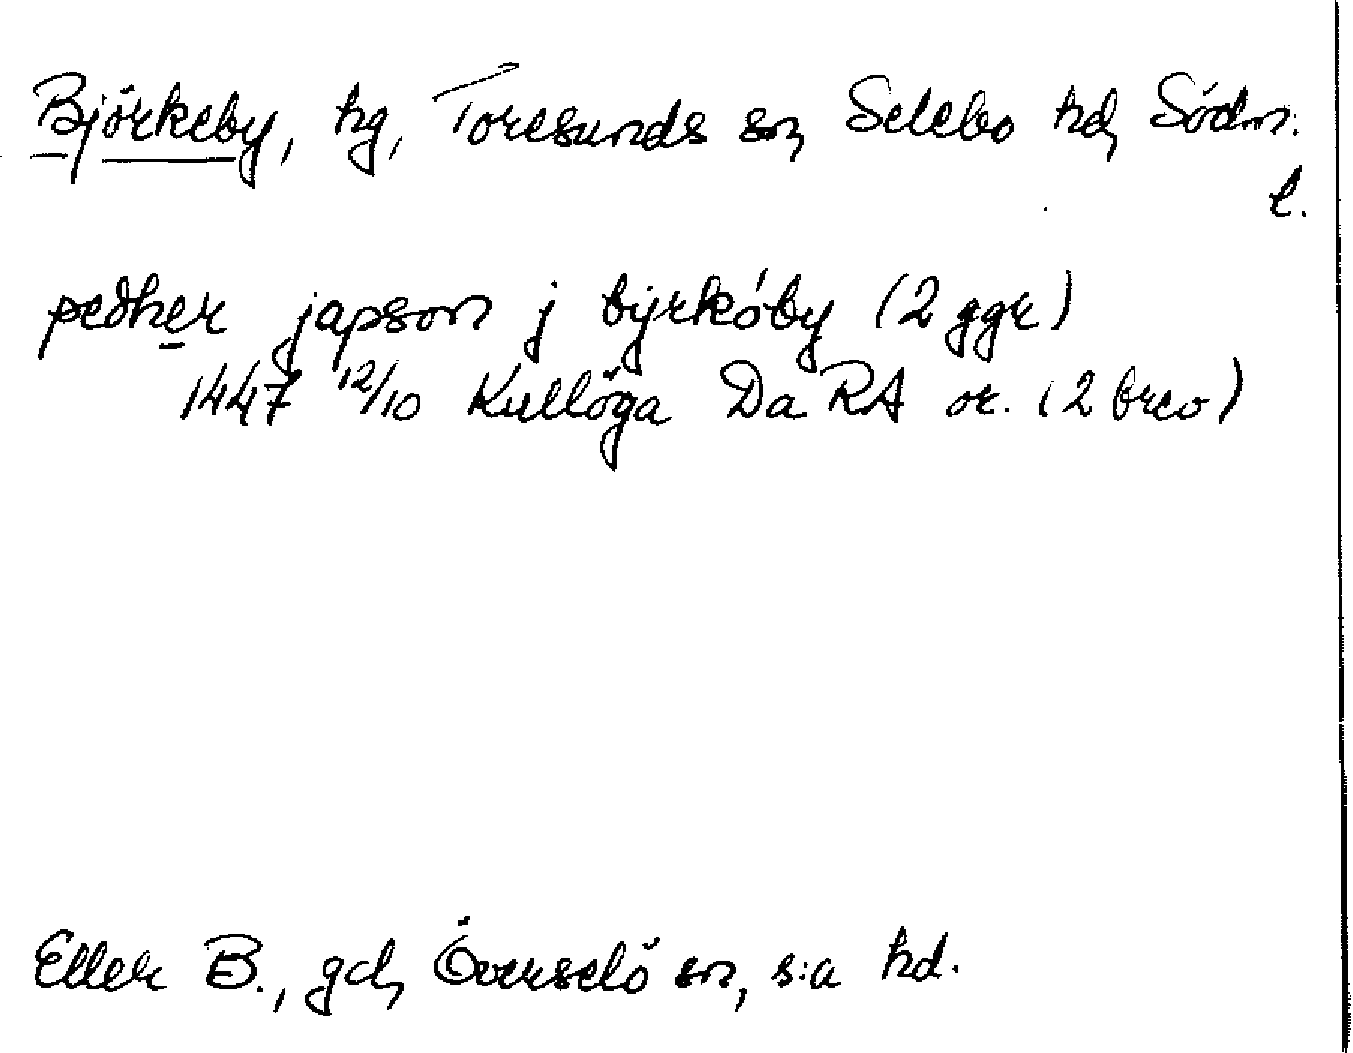 Björkeby, hg, Toresunds sn, Selebo hd, Södm.
l.
pedher japson j byrköby (2 ggr)
1447 12/10 Kullöga Da RA or. (2 brev)
Eller B., gd, Överselö sn, s:a hd.